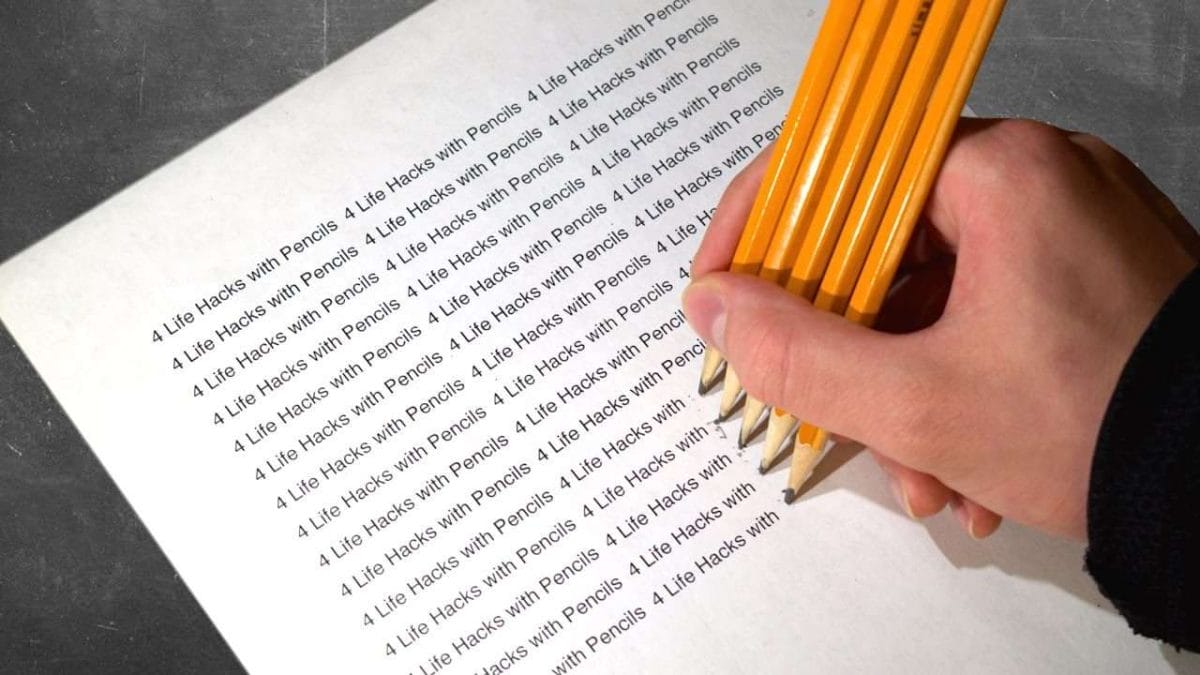 4 Life Hacks with Pencils 4 Life Hacks with Pencils 4 Life Hacks with
4 Life Hacks with Pencils 4 Life Hacks with Pencils 4 Life Hacks with Pencils
4 Life Hacks with Pencils 4 Life Hacks with Pencils 4 Life Hacks with Pencils
4 Life Hacks with Pencils 4 Life Hacks with Pencils 4 Life Hacks with Pencils
4 Life Hacks with Pencils 4 Life Hacks with Pencils 4 Life Hacks with Pencils
4 Life Hacks with Pencils 4 Life Hacks with Pencils 4 Life Hacks with
4 Life Hacks with Pencils 4 Life Hacks with Pencils 4 Life
4 Life Hacks with Pencils 4 Life Hacks with Pencils 4
4 Life Hacks with Pencils 4 Life Hacks with
4 Life Hacks with Pencils 4 Life Hacks with
4 Life Hacks with Pencils 4 Life Hacks with
4 Life Hacks with Pencils 4 Life Hacks with
Life Hacks with Pencils 4 Life Hacks with
Hacks with Pencils 4 Life Hacks with
with Pencils 4 Life Hacks with